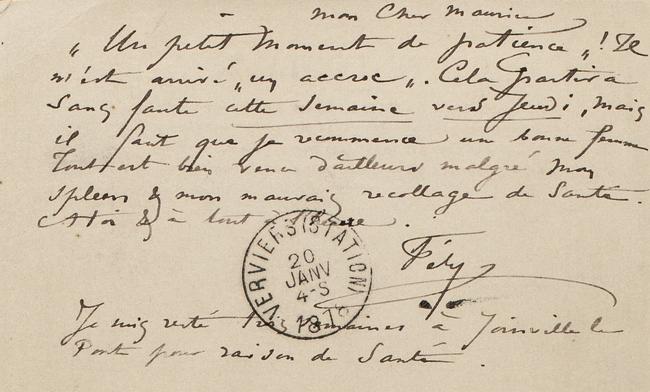 mon cher Maurice
„ Un petit moment de patience „! Il
m'est arrivé „ un accroc „. Cela partira
sans faute cette semaine vers Jeudi, mais
il faut que je recommence un bonne femme
Tout est bien venu d'ailleurs malgré mon
spleen & mon mauvais recollage de Santé.
A toi & à tout à l'heure.
Fély
VERVIERS (STATION)
20
JANV
4-S
187
Je suis resté trois semaines à Joinville le
Pont pour raison de Santé.